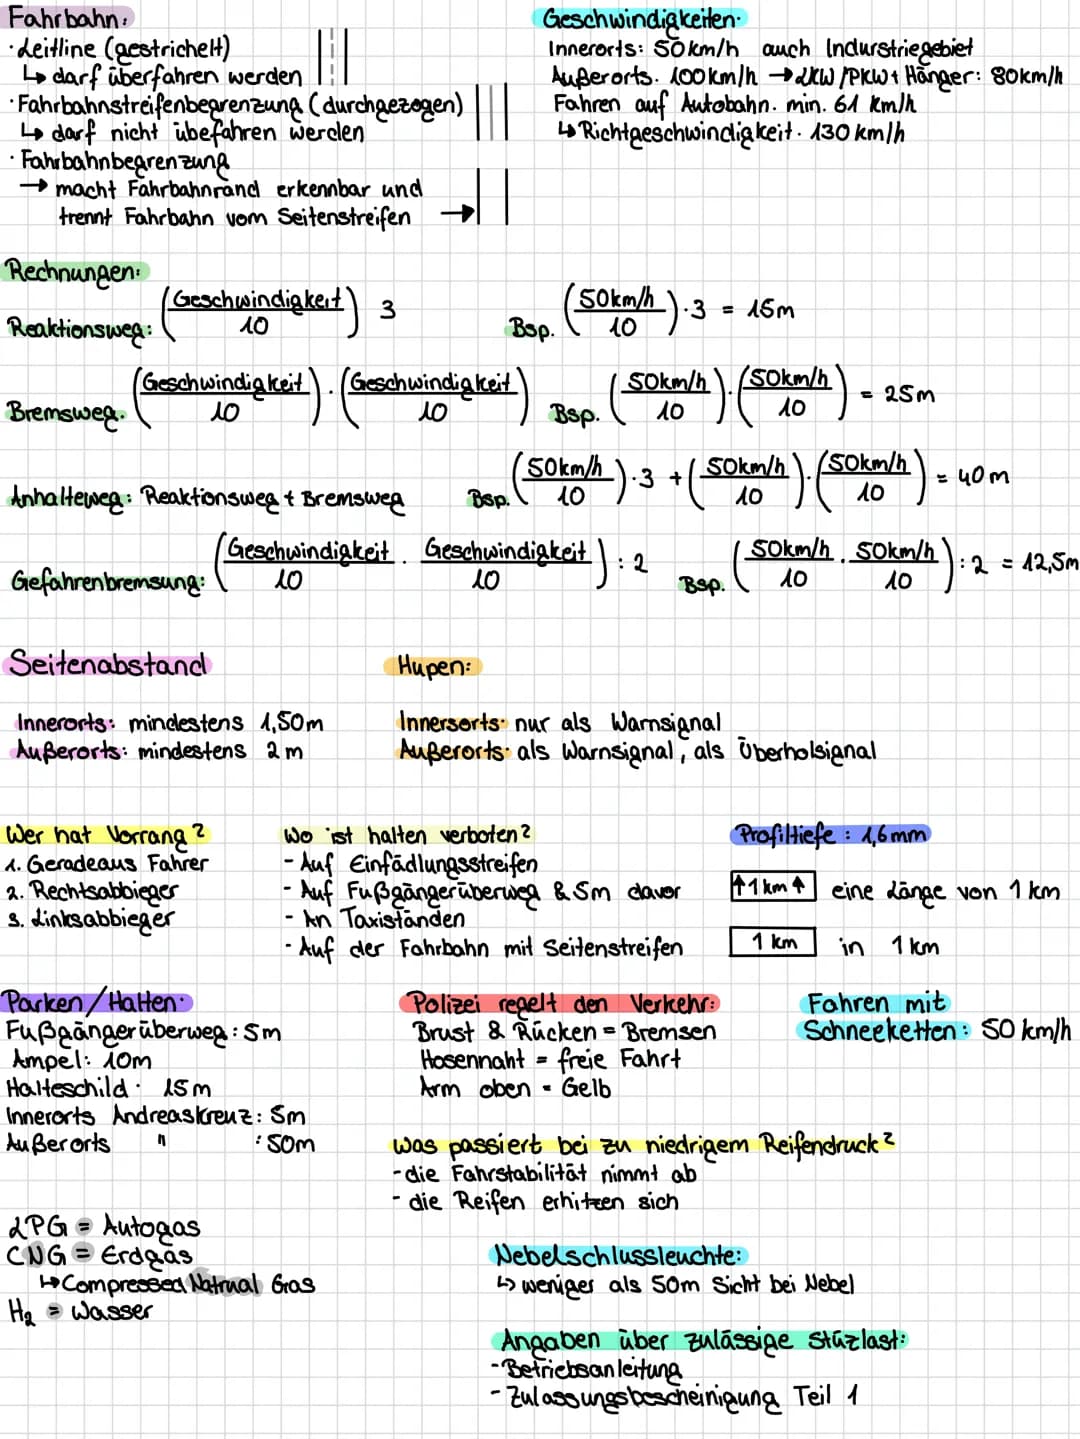 Fahrbahn:
· Leitline (gestrichelt)
↳ darf überfahren werden
· Fahrbahnstreifenbegrenzung (durchgezogen)
↳ darf nicht übefahren werden
· Fahrbahnbegrenzung
→ macht Fahrbahnrand erkennbar und
trennt Fahrbahn vom Seitenstreifen →
Geschwindigkeiten:
Innerorts: 50km/h auch Indurstriegebiet
Außerorts: 100km/h → LKW/PKW+ Hänger: 80km/h
Fahren auf Autobahn: min. 61 km/h
↳ Richtgeschwindigkeit: 130 km/h
Rechnungen:
Reaktionsweg: (Geschwindigkeit / 10) 3 Bsp. (50km/h / 10) · 3 = 15m
Bremsweg: (Geschwindigkeit / 10) · (Geschwindigkeit / 10) Bsp. (50km/h / 10) · (50km/h / 10) = 25m
Anhalteweg: Reaktionsweg + Bremsweg Bsp. (50km/h / 10) · 3 + (50km/h / 10) · (50km/h / 10) = 40m
Gefahrenbremsung: (Geschwindigkeit / 10 · Geschwindigkeit / 10) : 2 Bsp. (50km/h / 10 · 50km/h / 10) : 2 = 12,5m
Seitenabstand
Innerorts: mindestens 1,50m
Außerorts: mindestens 2m
Hupen:
Innersorts: nur als Warnsignal
Außerorts: als Warnsignal, als Überholsignal
Wer hat Vorrang?
1. Geradeaus Fahrer
2. Rechtsabbieger
3. Linksabbieger
Wo ist halten verboten?
- Auf Einfädlungsstreifen
- Auf Fußgängerüberweg & 5m davor
- An Taxiständen
- Auf der Fahrbahn mit Seitenstreifen
Profiltiefe: 1,6mm
↑1km↑ eine Länge von 1 km
1 km in 1km
Parken/Halten:
Fußgängerüberweg: 5m
Ampel: 10m
Halteschild: 15m
Innerorts Andreaskreuz: 5m
Außerorts " : 50m
Polizei regelt den Verkehr:
Brust & Rücken = Bremsen
Hosennaht = freie Fahrt
Arm oben = Gelb
Fahren mit
Schneeketten: 50 km/h
Was passiert bei zu niedrigem Reifendruck?
- die Fahrstabilität nimmt ab
- die Reifen erhitzen sich
LPG = Autogas
CNG = Erdgas
↳ Compressed Natrual Gras
H2 = Wasser
Nebelschlussleuchte:
↳ weniger als 50m Sicht bei Nebel
Angaben über zulässige Stüzlast:
- Betriebsanleitung
- Zulassungsbescheinigung Teil 1